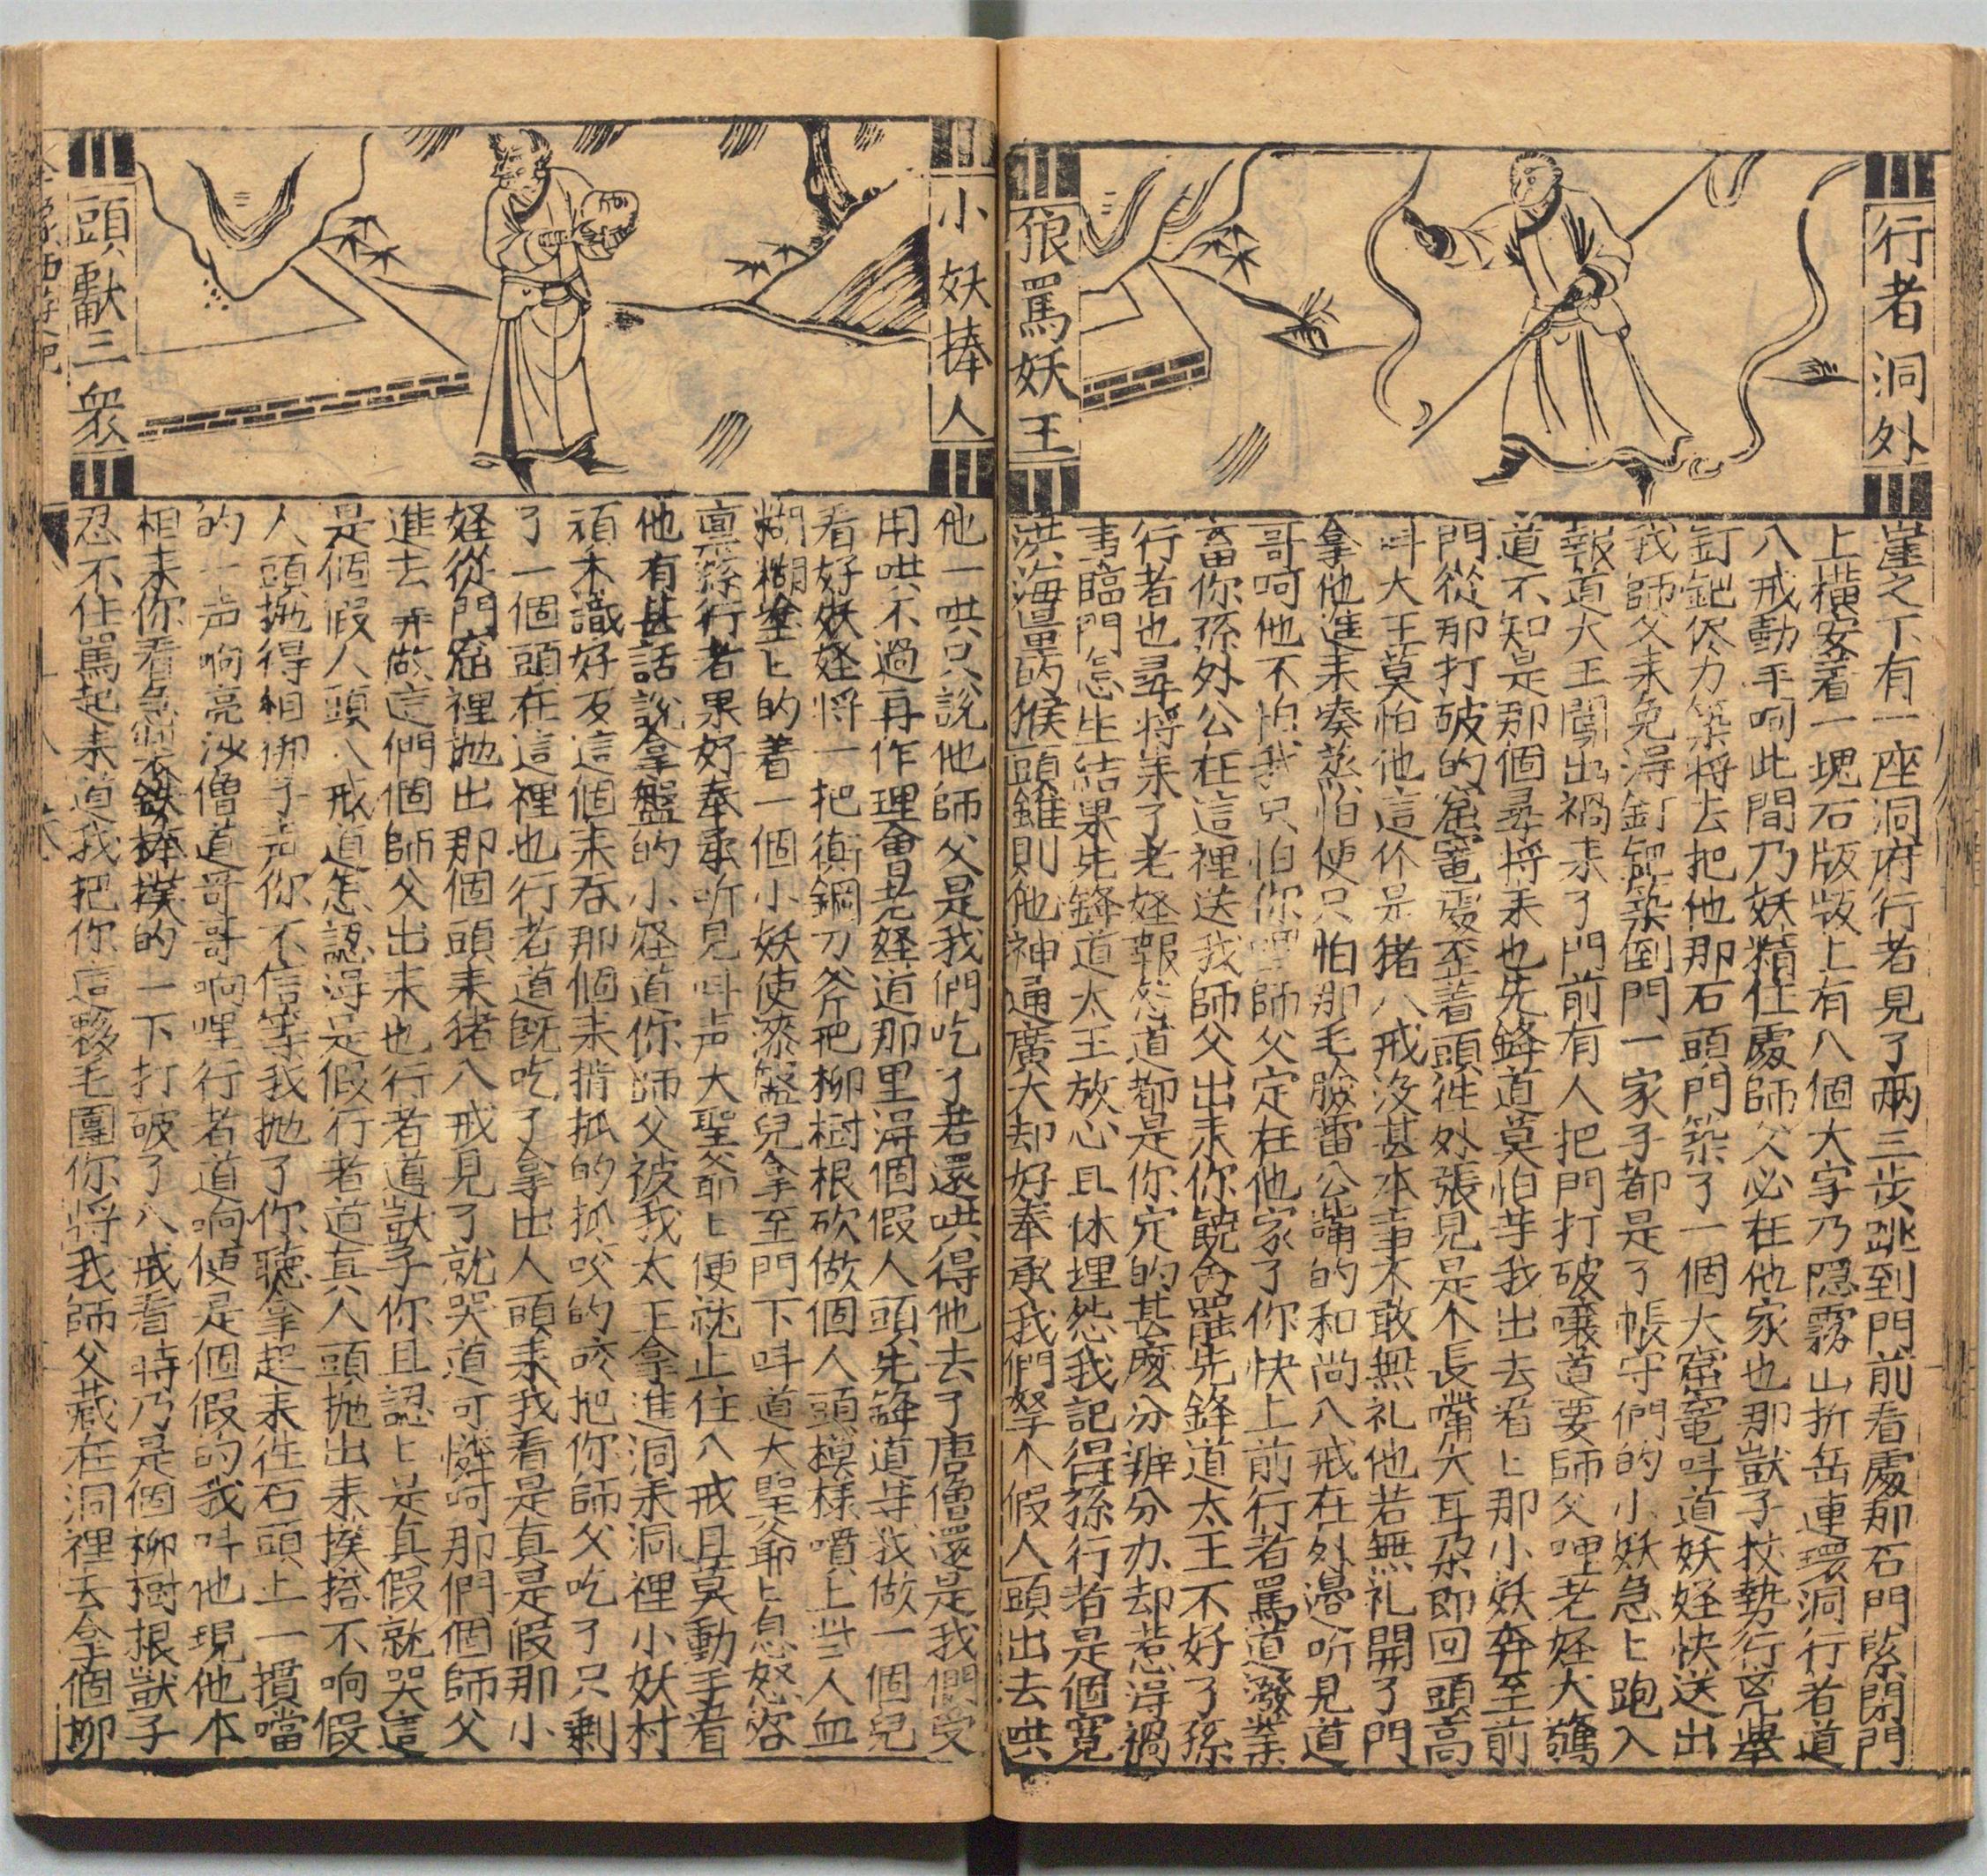 行者洞外
狠罵妖王
崖之下有一座洞府行者見了兩三步跳到門前看處那石門緊閉門
上橫安着一塊石版版上有八個大字乃隱霧山折岳連環洞行者道
八戒動手呵此間乃妖精住處師父必在他家也那獃子仗勢行兇舉
釘鈀尽力築將去把他那石頭門築了一個大窟窿叫道妖怪快送出
我師父来免得釘鈀築倒門一家子都是了帳守們的小妖急匕跑入
報道大王闖出禍来了門前有人把門打破嚷道要師父哩老怪大驚
道不知是那個尋將来也先鋒道莫怕等我出去看匕那小妖奔至前
門從那打破的窟窿處歪着頭徃外張見是个長嘴大耳朶即回頭高
叫大王莫怕他這个是猪八戒沒甚本事不敢無礼他若無礼開了門
拿他進来凑蒸怕便只怕那毛臉雷公嘴的和尚八戒在外邉听見道
哥呵他不怕我只怕你哩師父定在他家了你快上前行者罵道潑業
畜你孫外公在這裡送我師父出来你饒命罷先鋒道大王不好了孫
行者也尋將来了老怪報怨道都是你定的甚麼分辦分办却惹淂禍
事臨門怎生結果先鋒道大王放心且休埋怨我記得孫行者是個寛
洪海量的猴頭雖則他神通廣大却好奉承我們拏个假人頭出去哄
小妖捧人
頭獻三衆
他一哄只說他師父是我們吃了若還哄得他去了唐僧還是我們受
用哄不過再作理會老怪道那里淂個假人頭先鋒道等我做一個兒
看好妖怪將一把衠鋼刀斧把柳樹根砍做個人頭模樣噴上些人血
糊糊塗匕的着一個小妖使漆盤兒拿至門下叫道大聖爺匕息怒容
禀孫行者果好奉承听見叫声大聖爺匕便就止住八戒且莫動手看
他有甚話說拿盤的小怪道你師父被我大王拿進洞来洞裡小妖村
頑不識好歹這個来吞那個来揹抓的抓咬的咬把你師父吃了只剩
了一個頭在這裡也行者道既吃了拿出人頭来我看是真是假那小
怪從門窟裡拋出那個頭来猪八戒見了就哭道可憐呵那們個師父
進去弄做這們個師父出来也行者道獃子你且認匕是真假就哭這
是個假人頭八戒道怎認淂是假行者道真人頭拋出来撲搭不响假
人頭拋得相梆子声你不信等我拋了你聽拿起来徃石頭上一摜噹
的一声响亮沙僧道哥哥响哩行者道响便是個假的我叫他現他本
相来你看急掣鉄棒撲的一下打破了八戒看時乃是個柳樹根獃子
忍不住罵起来道我把你這夥毛團你將我師父藏在洞裡去拿個柳